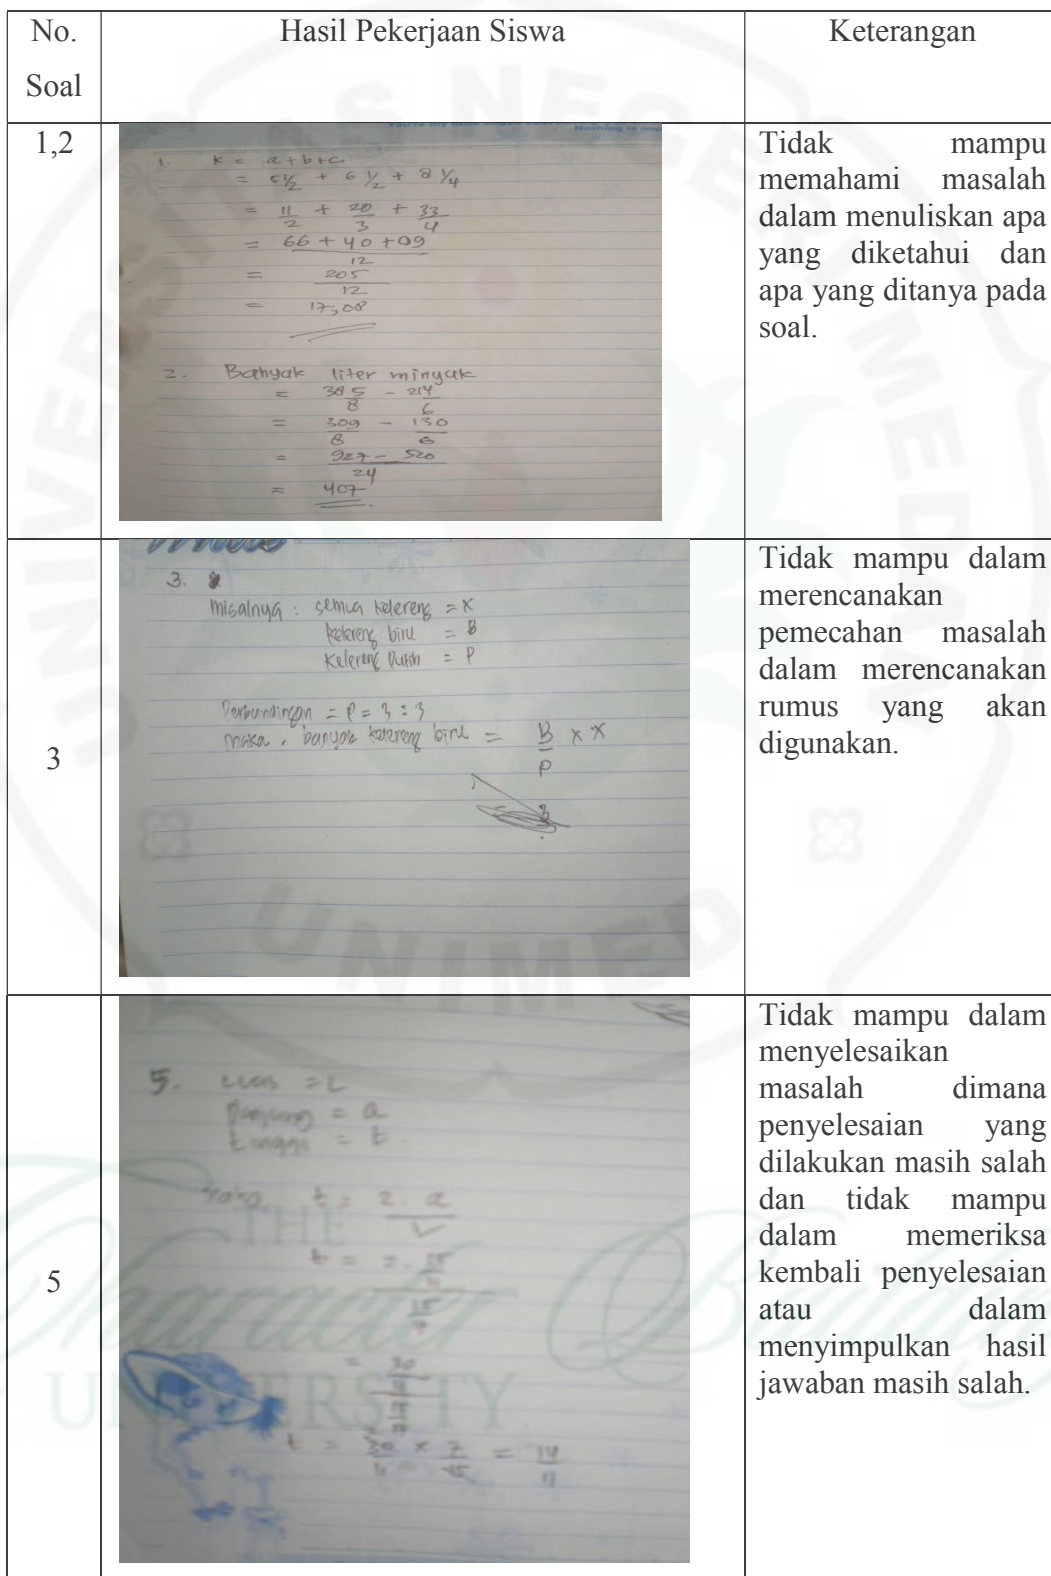 No.
Soal
Hasil Pekerjaan Siswa
Keterangan
1,2
1. K = a+b+c
= 5 1/2 + 6 1/2 + 8 1/4
= 11/2 + 20/3 + 33/4
= 66 + 40 + 09 / 12
= 205/12
= 17,08
2. Banyak liter minyak
= 38 5/8 - 21 4/6
= 309/8 - 130/6
= 927 - 520 / 24
= 407
Tidak mampu
memahami masalah
dalam menuliskan apa
yang diketahui dan
apa yang ditanya pada
soal.
3
3.
Misalnya : semua kelereng = X
kelereng biru = B
Kelereng Putih = P
Perbandingan = P = 3 : 3
Maka, banyak kelereng biru = B/P × X
3
Tidak mampu dalam
merencanakan
pemecahan masalah
dalam merencanakan
rumus yang akan
digunakan.
5
5. Luas = L
Panjang = a
tinggi = t
Maka, t = 2. a / L
t = 2.
=
t = × 7 = 14
Tidak mampu dalam
menyelesaikan
masalah dimana
penyelesaian yang
dilakukan masih salah
dan tidak mampu
dalam memeriksa
kembali penyelesaian
atau dalam
menyimpulkan hasil
jawaban masih salah.
UNIVERSITAS NEGERI MEDAN
UNIMED
THE
Character Building
UNIVERSITY